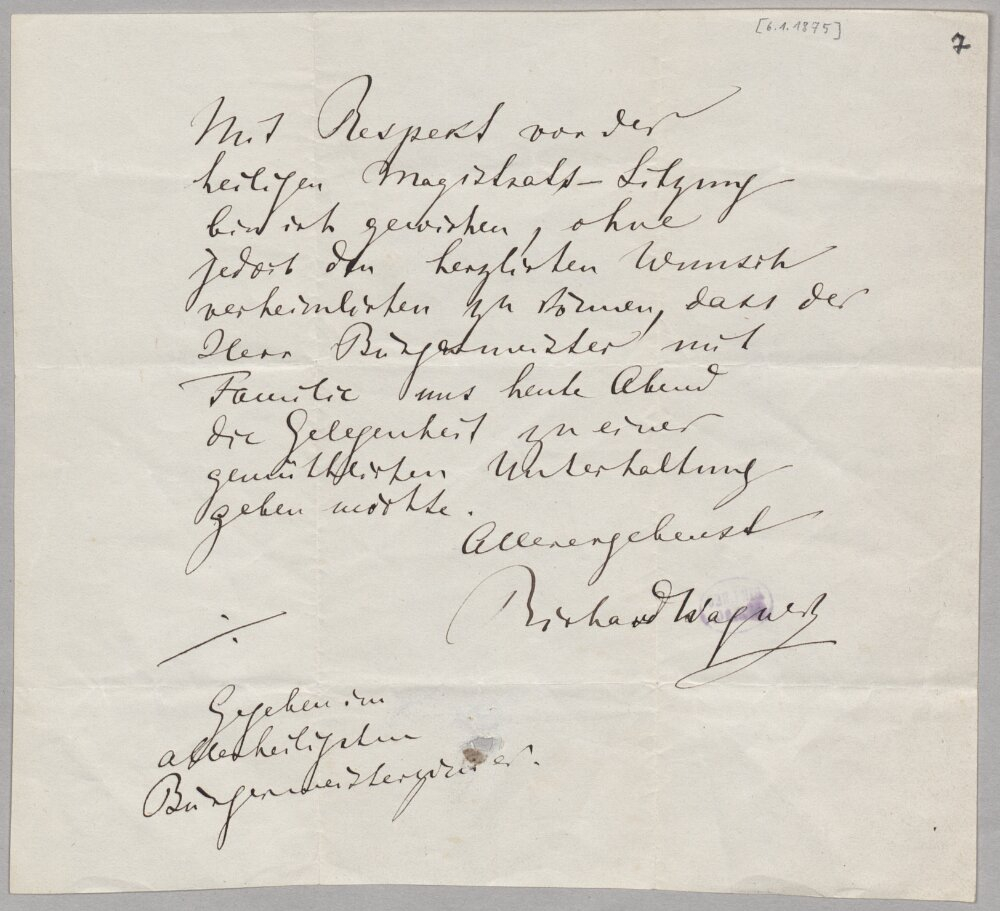 [6.1.1875]
7
Mit Respekt vor der
heiligen Magistrats-Sitzung
bin ich gewichen, ohne
jedoch den herzlichen Wunsch
verheimlichen zu können, dass der
Herr Bürgermeister mit
Familie uns heute Abend
die Gelegenheit zu einer
gemüthlichen Unterhaltung
geben möchte.
Allerergebenst
Richard Wagner
Gegeben im
allerheiligsten
Bürgermeisterzimmer.